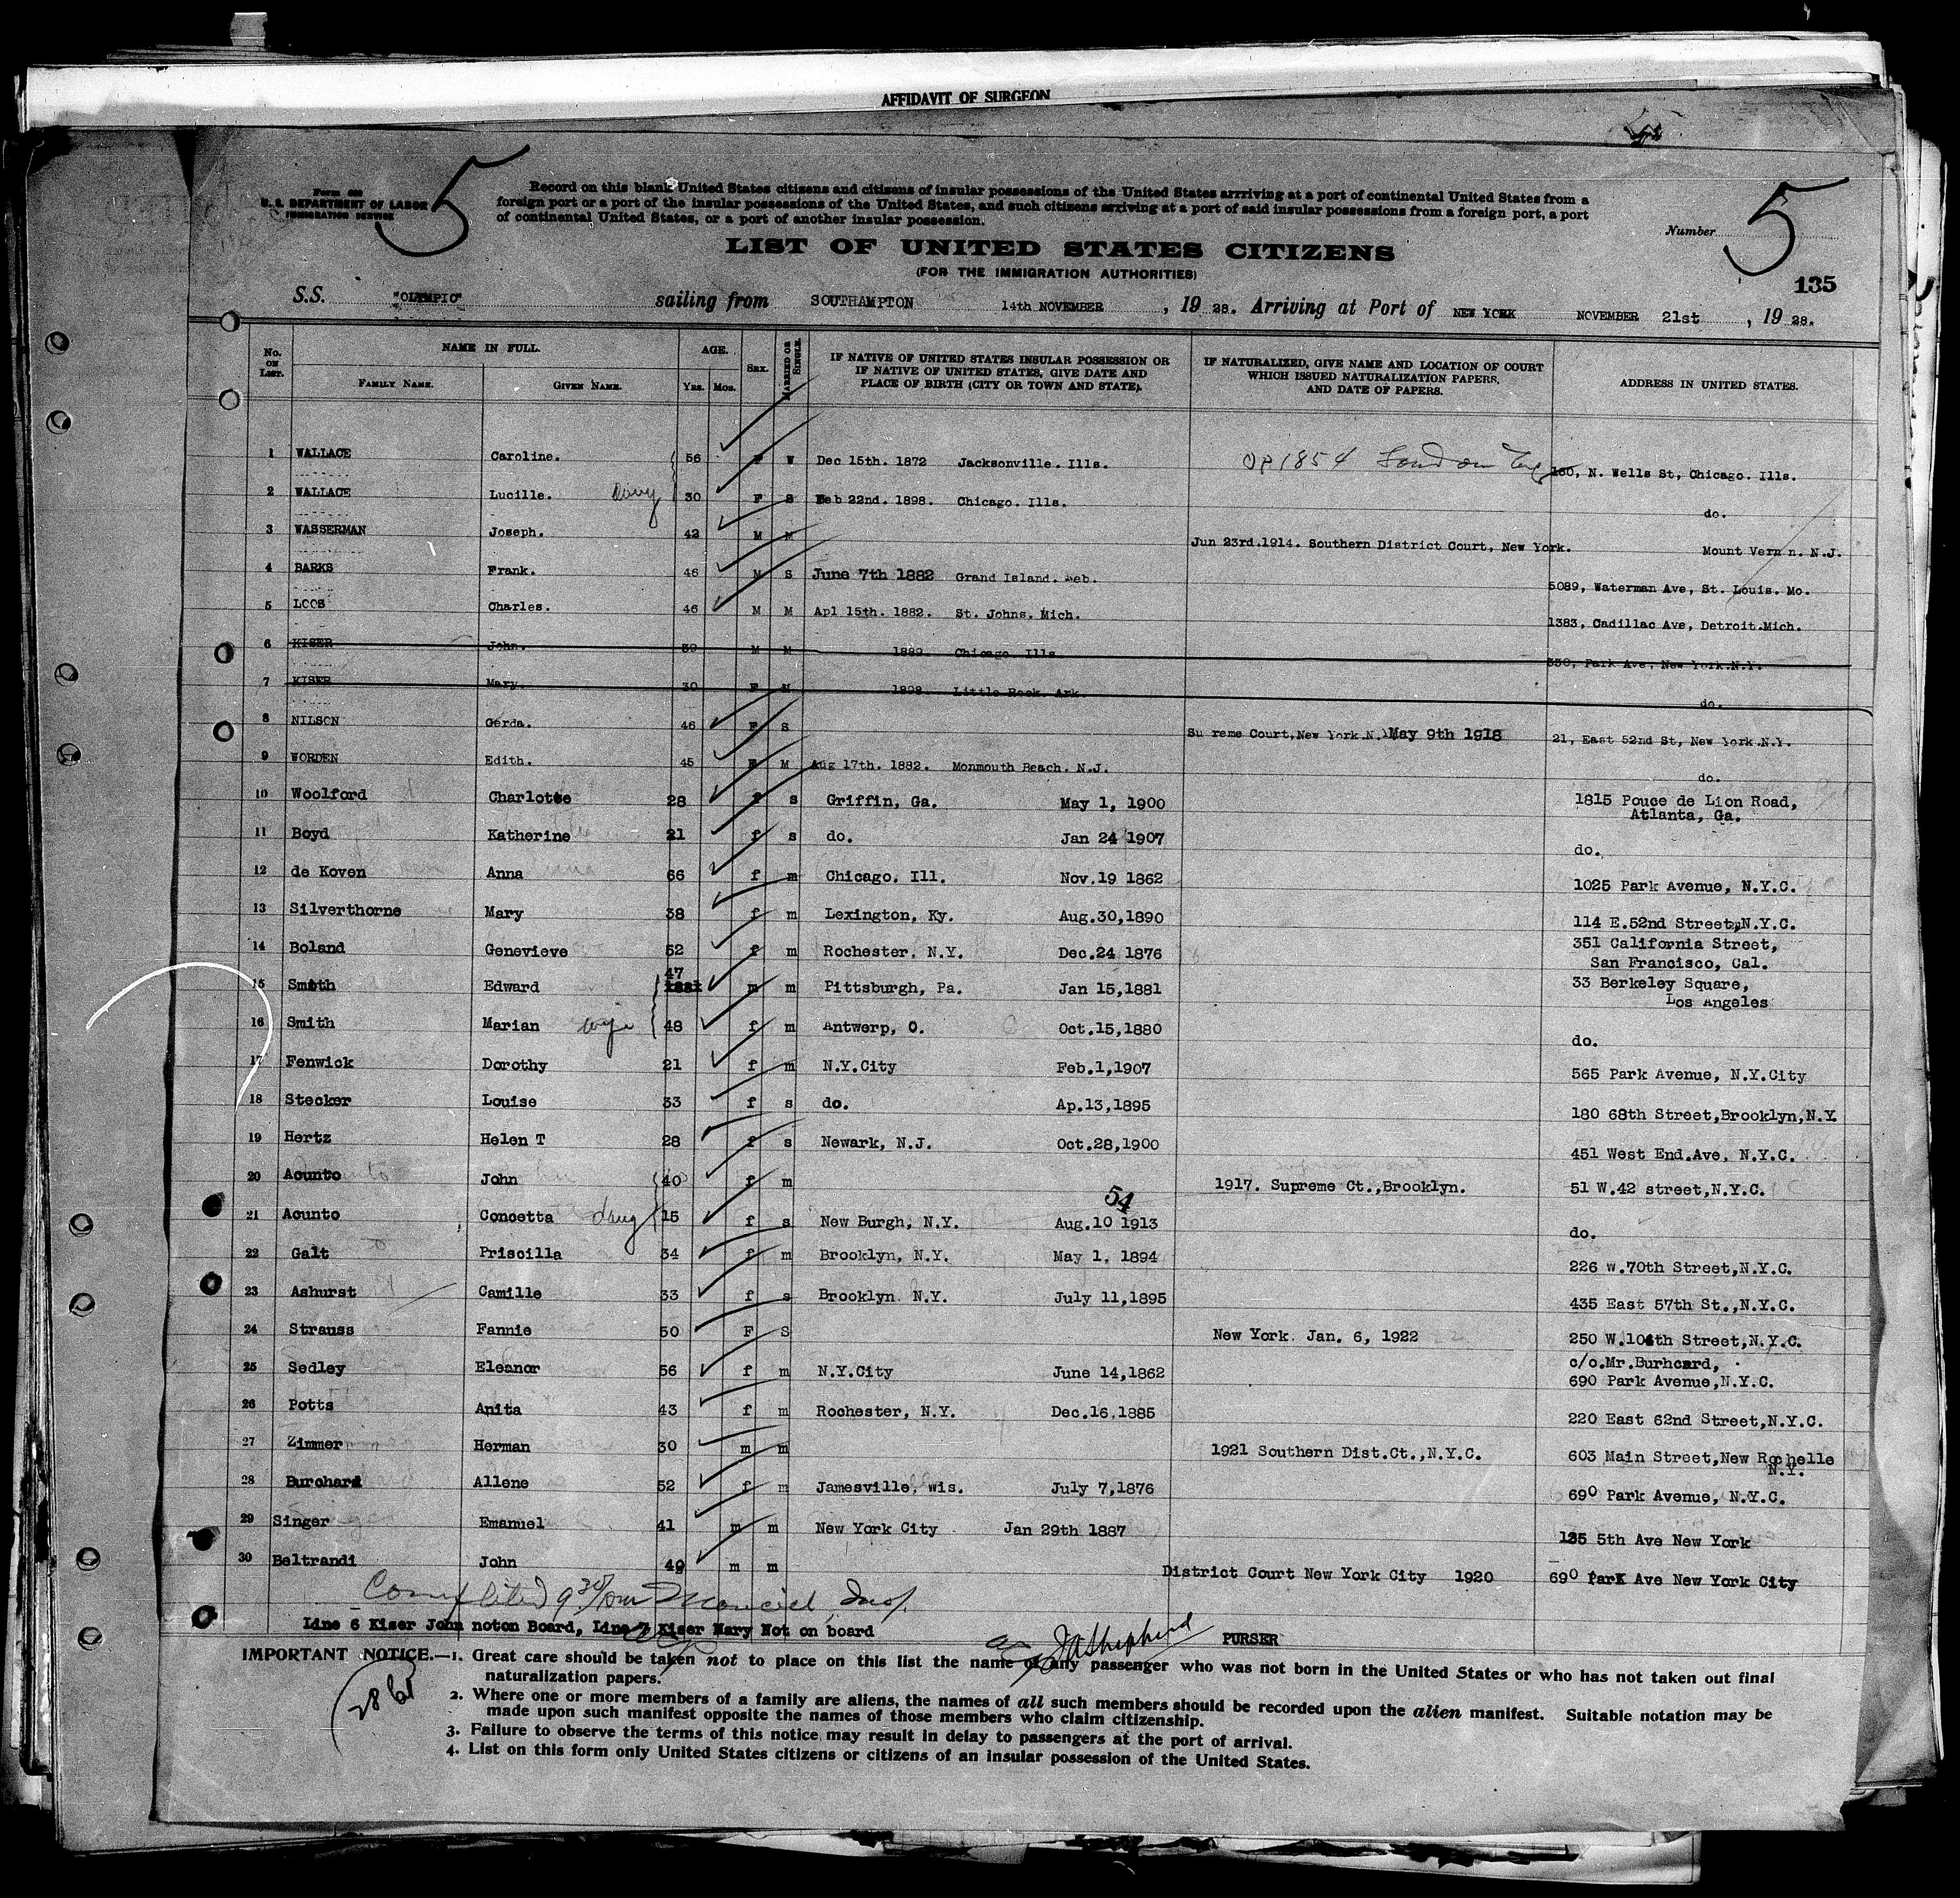 AFFIDAVIT OF SURGEON
5
5
Form 630
U. S. DEPARTMENT OF LABOR
IMMIGRATION SERVICE
Record on this blank United States citizens and citizens of insular possessions of the United States arrriving at a port of continental United States from a
foreign port or a port of the insular possessions of the United States, and such citizens arriving at a port of said insular possessions from a foreign port, a port
of continental United States, or a port of another insular possession.
Number
LIST OF UNITED STATES CITIZENS
(FOR THE IMMIGRATION AUTHORITIES)
135
S.S. "OLYMPIC" sailing from SOUTHAMPTON 14th NOVEMBER, 19 28. Arriving at Port of NEW YORK NOVEMBER 21st, 19 28.
No. ON LIST. NAME IN FULL. FAMILY NAME. GIVEN NAME. AGE. YRS. MOS. SEX. MARRIED OR SINGLE. IF NATIVE OF UNITED STATES INSULAR POSSESSION OR IF NATIVE OF UNITED STATES, GIVE DATE AND PLACE OF BIRTH (CITY OR TOWN AND STATE). IF NATURALIZED, GIVE NAME AND LOCATION OF COURT WHICH ISSUED NATURALIZATION PAPERS, AND DATE OF PAPERS. ADDRESS IN UNITED STATES.
1 WALLACE Caroline. 56 F W Dec 15th. 1872 Jacksonville. Ills. OP 1854 London 160, N. Wells St, Chicago. Ills.
2 WALLACE Lucille. 30 F S Feb 22nd. 1898. Chicago. Ills. do.
3 WASSERMAN Joseph. 42 M M Jun 23rd.1914. Southern District Court, New York. Mount Vern n. N.J.
4 BARKS Frank. 46 M S June 7th 1882 Grand Island. Neb. 5089, Waterman Ave, St. Louis. Mo.
5 LOOS Charles. 46 M M Apl 15th. 1882. St. Johns. Mich. 1383, Cadillac Ave, Detroit.Mich.
6 KISER John. 39 M M 1889. Chicago. Ills. 550, Park Ave, New York.N.Y.
7 KISER Mary. 30 F M 1898. Little Rock. Ark. do.
8 NILSON Gerda. 46 F S Su reme Court,New York.N.Y May 9th 1918 21, East 52nd St, New York.N.Y.
9 WORDEN Edith. 45 F M Aug 17th. 1882. Monmouth Beach. N.J. do.
10 Woolford Charlotte 28 f s Griffin, Ga. May 1, 1900 1815 Pouce de Lion Road,
Atlanta, Ga.
11 Boyd Katherine 21 f s do. Jan 24 1907 do.
12 de Koven Anna 66 f m Chicago. Ill. Nov.19 1862 1025 Park Avenue, N.Y.C.
13 Silverthorne Mary 38 f m Lexington, Ky. Aug.30,1890 114 E.52nd Street,N.Y.C.
14 Boland Genevieve 52 f m Rochester, N.Y. Dec.24 1876 351 California Street,
San Francisco, Cal.
15 Smith Edward 47 1881 m m Pittsburgh, Pa. Jan 15,1881 33 Berkeley Square,
Los Angeles
16 Smith Marian wife 48 f m Antwerp, O. Oct.15,1880 do.
17 Fenwick Dorothy 21 f m N.Y.City Feb.1,1907 565 Park Avenue, N.Y.City
18 Stecker Louise 33 f s do. Ap.13,1895 180 68th Street,Brooklyn,N.Y.
19 Hertz Helen T 28 f s Newark, N.J. Oct.28,1900 451 West End.Ave, N.Y.C.
20 Acunto John 40 f m 1917. Supreme Ct.,Brooklyn. 51 W.42 street,N.Y.C.
54
21 Acunto Concetta daug 15 f s New Burgh, N.Y. Aug.10 1913 do.
22 Galt Priscilla 34 f m Brooklyn, N.Y. May 1, 1894 226 W.70th Street,N.Y.C.
23 Ashurst Camille 33 f s Brooklyn N.Y. July 11,1895 435 East 57th St.,N.Y.C.
24 Strauss Fannie 50 F S New York. Jan. 6, 1922 250 W.104th Street,N.Y.C.
25 Sedley Eleanor 56 f m N.Y.City June 14,1862 c/o.Mr.Burhcard,
690 Park Avenue,N.Y.C.
26 Potts Anita 43 f m Rochester, N.Y. Dec.16,1885 220 East 62nd Street,N.Y.C.
27 Zimmer Herman 30 m m 1921 Southern Dist.Ct.,N.Y.C. 603 Main Street,New Rochelle
N.Y.
28 Burchard Allene 52 f m Jamesville, Wis. July 7,1876 690 Park Avenue, N.Y.C.
29 Singer Emanuel 41 m m New York City Jan 29th 1887 135 5th Ave New York
30 Beltrandi John 49 m m District Court New York City 1920 690 Park Ave New York City
Completed 9 30 pm Insp.
Line 6 Kiser John noton Board, Line 7 Kiser Mary Not on board
JA Shepherd PURSER
IMPORTANT NOTICE.—1. Great care should be taken not to place on this list the name of any passenger who was not born in the United States or who has not taken out final
naturalization papers.
2. Where one or more members of a family are aliens, the names of all such members should be recorded upon the alien manifest. Suitable notation may be
made upon such manifest opposite the names of those members who claim citizenship.
3. Failure to observe the terms of this notice may result in delay to passengers at the port of arrival.
4. List on this form only United States citizens or citizens of an insular possession of the United States.